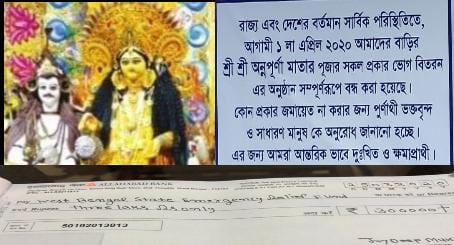 রাজ্য এবং দেশের বর্তমান সার্বিক পরিস্থিতিতে,
আগামী ১ লা এপ্রিল ২০২০ আমাদের বাড়ির
শ্রী শ্রী অন্নপূর্ণা মাতার পূজার সকল প্রকার ভোগ বিতরন
এর অনুষ্ঠান সম্পূর্ণরূপে বন্ধ করা হয়েছে।
কোন প্রকার জমায়েত না করার জন্য পুর্ণার্থী ভক্তবৃন্দ
ও সাধারণ মানুষ কে অনুরোধ জানানো হচ্ছে।
এর জন্য আমরা আন্তরিক ভাবে দুঃখিত ও ক্ষমাপ্রার্থী।
ALLAHABAD BANK
Pay West Bengal State Emergency Relief Fund
three lakhs only
₹ 300000/-
50182013013
Joydeep